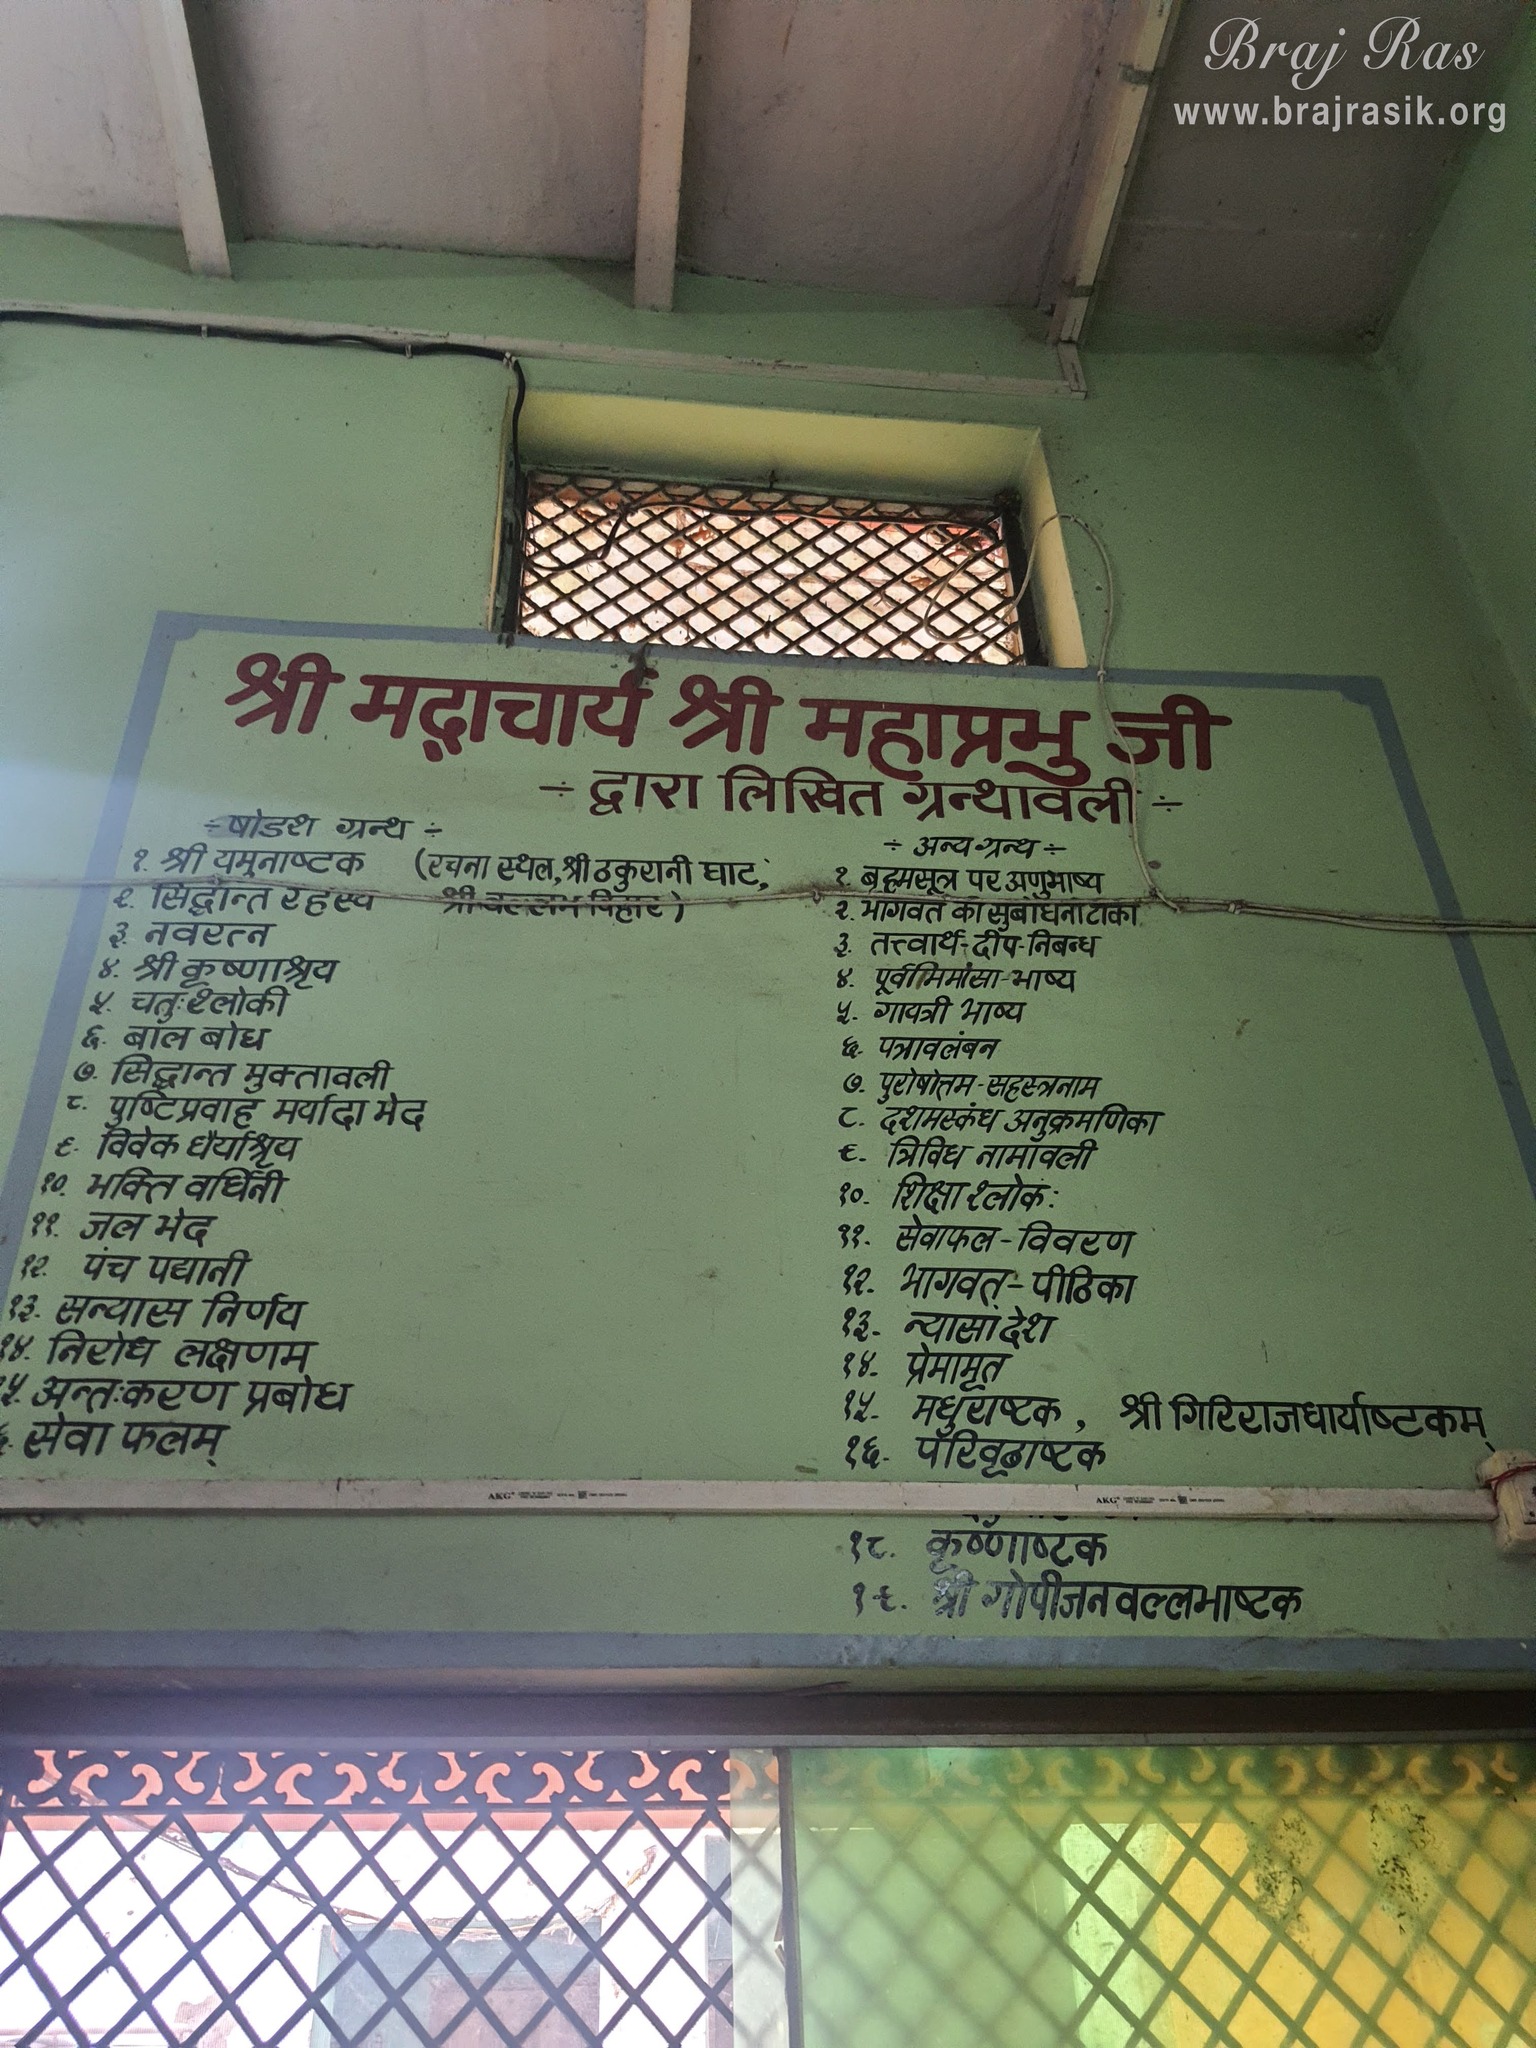 Braj Ras
www.brajrasik.org
श्री मद्राचार्य श्री महाप्रभु जी
÷ द्वारा लिखित ग्रन्थावली ÷
÷ षोडश ग्रन्थ ÷
१. श्री यमुनाष्टक (रचना स्थल, श्री ठकुरानी घाट,
श्री वल्लभ विहार)
२. सिद्धान्त रहस्य
३. नवरत्न
४. श्री कृष्णाश्रृय
५. चतुःश्लोकी
६. बाल बोध
७. सिद्धान्त मुक्तावली
८. पुष्टिप्रवाह मर्यादा भेद
९. विवेक धैर्याश्रृय
१०. भक्ति वर्धिनी
११. जल भेद
१२. पंच पद्यानी
१३. सन्यास निर्णय
१४. निरोध लक्षणम
१५. अन्तःकरण प्रबोध
६. सेवा फलम्
÷ अन्य ग्रन्थ ÷
१. ब्रह्मसूत्र पर अणुभाष्य
२. भागवत की सुबोधिनी टीका
३. तत्त्वार्थ-दीप-निबन्ध
४. पूर्वामिमांसा-भाष्य
५. गायत्री भाष्य
६. पत्रावलंबन
७. पुरोषोत्तम-सहस्त्रनाम
८. दशमस्कंध अनुक्रमणिका
९. त्रिविध नामावली
१०. शिक्षा श्लोक:
११. सेवाफल-विवरण
१२. भागवत्-पीठिका
१३. न्यासांदेश
१४. प्रेमामृत
१५. मधुराष्टक, श्री गिरिराजधार्याष्टकम्
१६. परिवृढाष्टक
१८. कृष्णाष्टक
१९. श्री गोपीजनवल्लभाष्टक
AKG
AKG